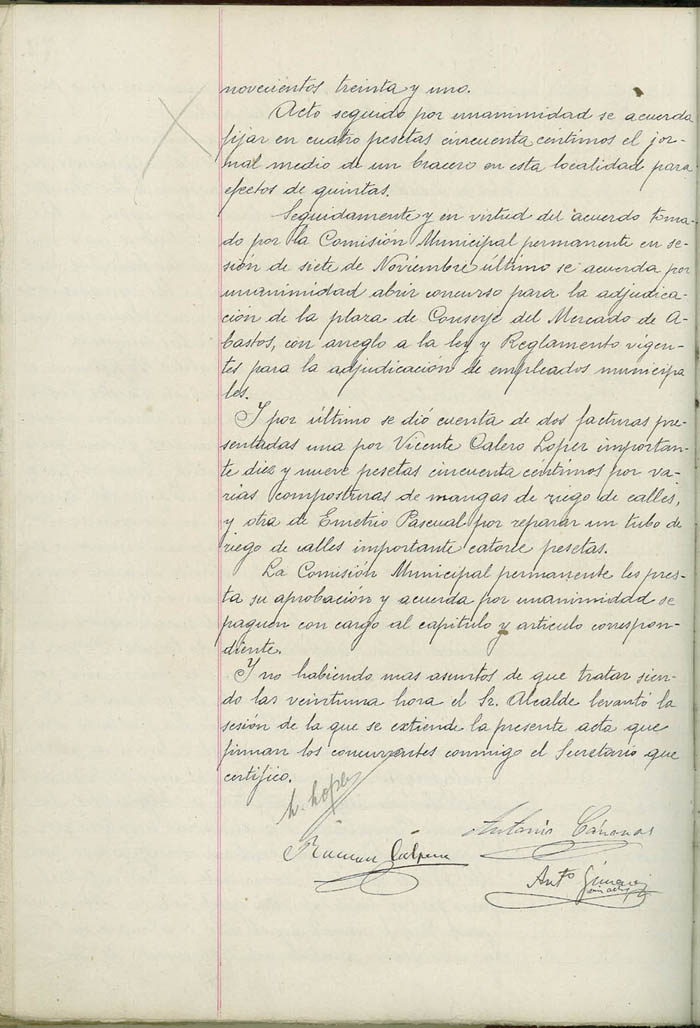 novecientos treinta y uno.
Acto seguido por unanimidad se acuerda
fijar en cuatro pesetas cincuenta centimos el jor-
nal medio de un bracero en esta localidad para
efectos de quintas.
Seguidamente y en virtud del acuerdo toma-
do por la Comisión Municipal permanente en se-
sión de siete de Noviembre último se acuerda por
unanimidad abrir concurso para la adjudica-
ción de la plaza de Conserje del Mercado de A-
bastos, con arreglo a la ley y Reglamento vigen-
tes para la adjudicación de empleados municipa
les.
Y por último se dió cuenta de dos facturas pre-
sentadas una por Vicente Calero Lopez importan-
te diez y nueve pesetas cincuenta céntimos por va-
rias composturas de mangas de riego de calles,
y otra de Emetrio Pascual por reparar un tubo de
riego de calles importante catorce pesetas.
La Comisión Municipal permanente les pres-
ta su aprobación y acuerda por unanimidad se
paguen con cargo al capitulo y articulo correspon-
diente.
Y no habiendo mas asuntos de que tratar sien-
do las veintiuna hora el Sr. Alcalde levantó la
sesión de la que se extiende la presente acta que
firman los concurrentes conmigo el Secretario que
certifico.
Antonio Cánovas
Ramon
Antº Gimenez